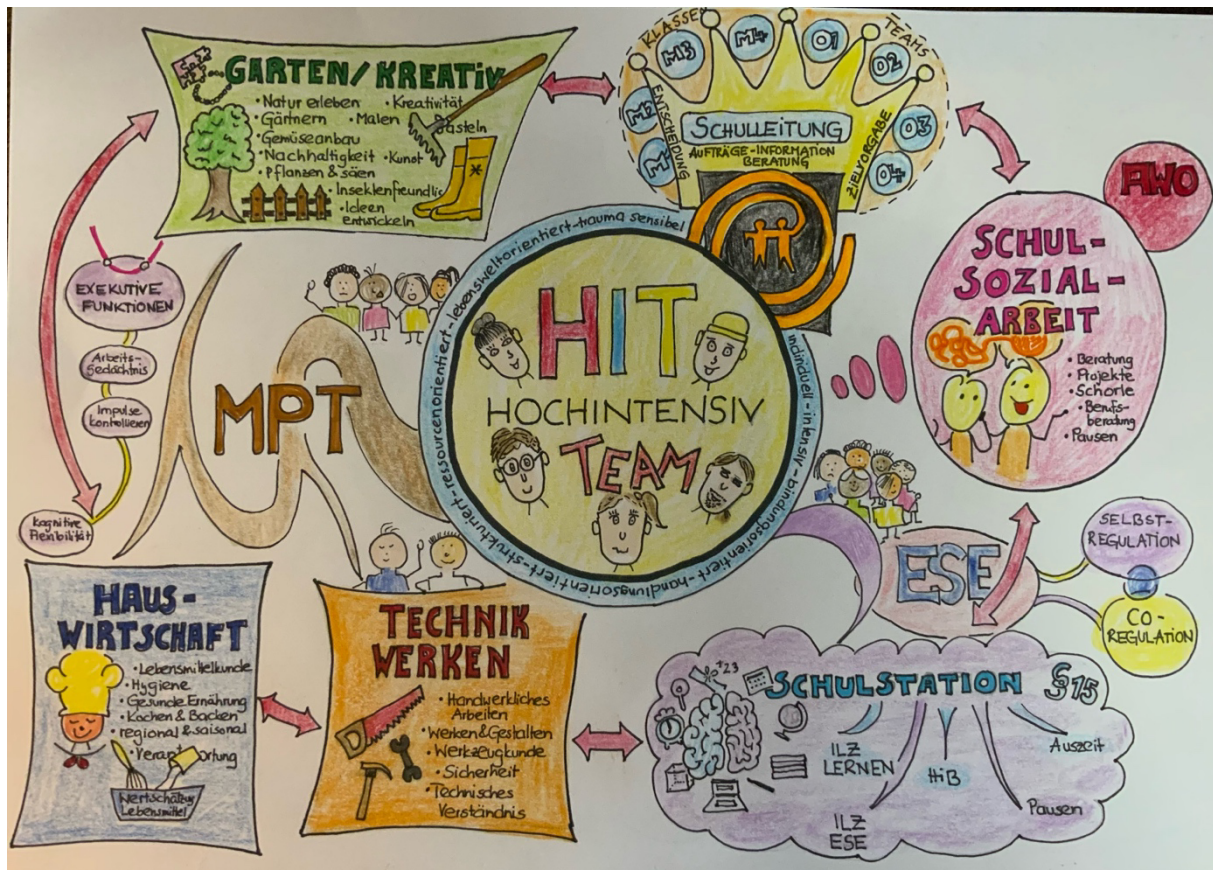 GARTEN/KREATIV
• Natur erleben
• Gärtnern
• Gemüseanbau
• Nachhaltigkeit
• Pflanzen & säen
• Kreativität
• Malen
Basteln
• Kunst
• Insektenfreundlic
• Ideen
entwickeln
KLASSEN
TEAMS
M2
M3
M4
O1
O2
O3
O4
ENTSCHEIDUNG
ZIELVORGABE
SCHULLEITUNG
AUFTRÄGE-INFORMATION
BERATUNG
AWO
SCHUL-
SOZIAL-
ARBEIT
• Beratung
• Projekte
• Schorle
• Berufs-
beratung
• Pausen
EXEKUTIVE
FUNKTIONEN
Arbeits-
gedächtnis
Impulse
kontrollieren
Kognitive
Flexibilität
MPT
strukturiert-ressourcenorientiert-lebensweltorientiert-trauma sensibel
individuell-intensiv-bindungsorientiert-handlungsorientiert-
HIT
HOCHINTENSIV
TEAM
ESE
SELBST-
REGULATION
CO-
REGULATION
HAUS-
WIRTSCHAFT
• Lebensmittelkunde
• Hygiene
Gesunde Ernährung
• Kochen & Backen
regional & saisonal
• Verantwortung
Wertschätzug
Lebensmittel
TECHNIK
WERKEN
• Handwerkliches
Arbeiten
• Werken & Gestalten
• Werkzeugkunde
• Sicherheit
• Technisches
Verständnis
+23
SCHULSTATION §15
ILZ
LERNEN
HiB
Auszeit
Pausen
ILZ
ESE